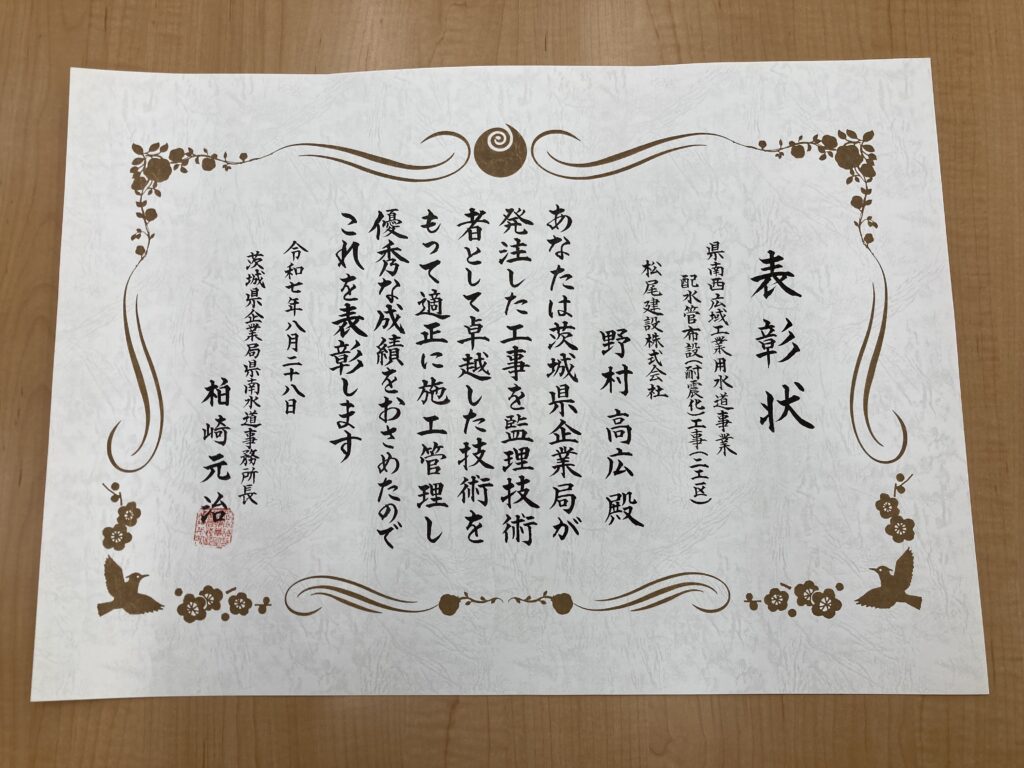 表彰状
県南西広域工業用水道事業
配水管布設(耐震化)工事(二工区)
松尾建設株式会社
野村高広殿
あなたは茨城県企業局が
発注した工事を監理技術
者として卓越した技術を
もって適正に施工管理し
優秀な成績をおさめたので
これを表彰します
令和七年八月二十八日
茨城県企業局県南水道事務所長
柏崎元治